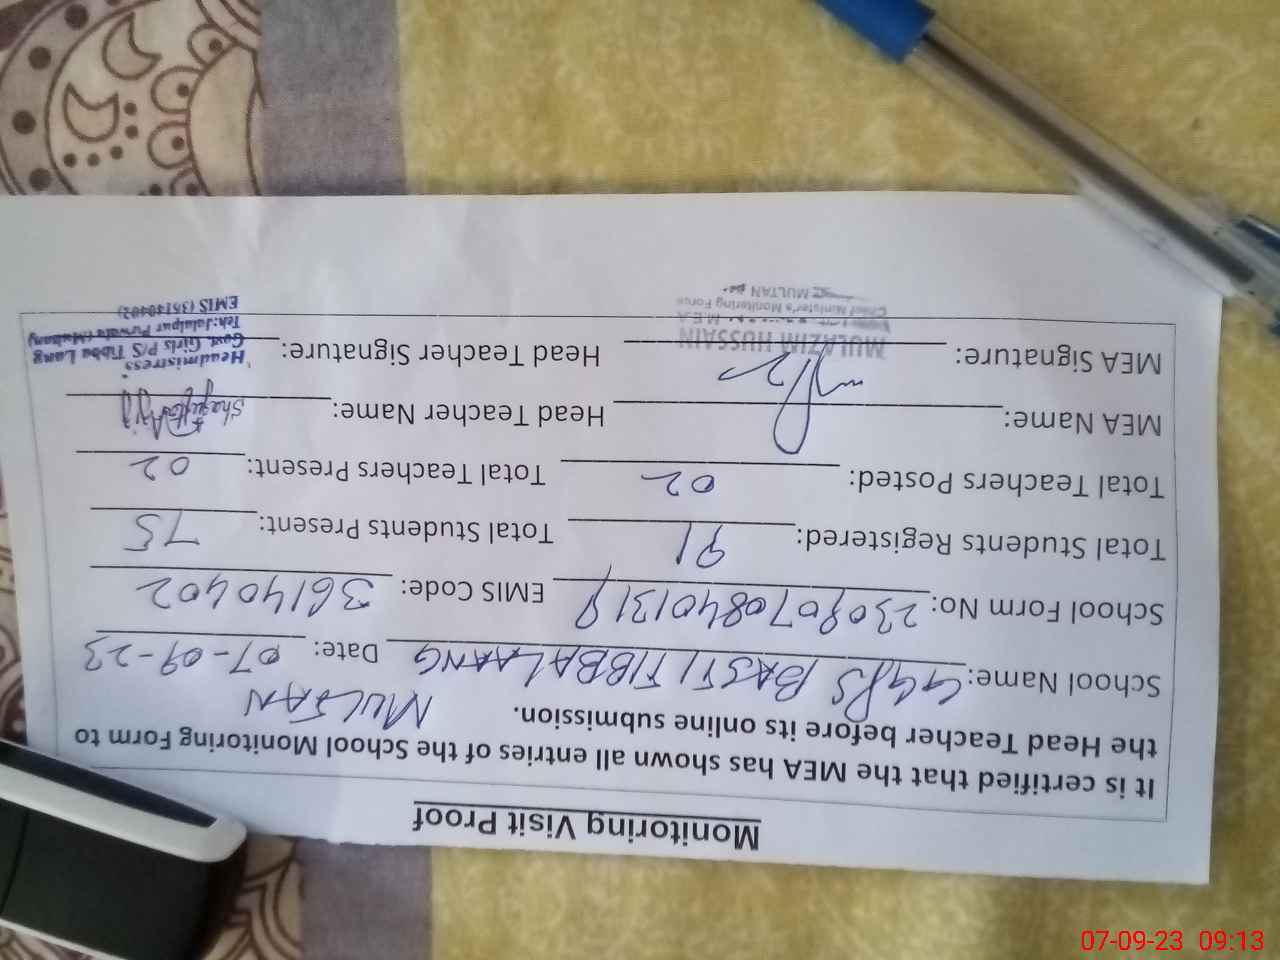 Monitoring Visit Proof
It is certified that the MEA has shown all entries of the School Monitoring Form to
the Head Teacher before its online submission. MULTAN
School Name: GGPS BASTI TIBBA LAANG Date: 07-09-23
School Form No: EMIS Code: 36140402
Total Students Registered: 91 Total Students Present: 75
Total Teachers Posted: 02 Total Teachers Present: 02
MEA Name: Head Teacher Name:
MEA Signature: Head Teacher Signature:
MULAZIM HUSSAIN
M.E.A
Chief Minister's Monitoring Force
MULTAN
Headmistress
Govt. Girls P/S Tibba Lang
Teh: Jalalpur Pirwala (Multan)
07-09-23 09:13